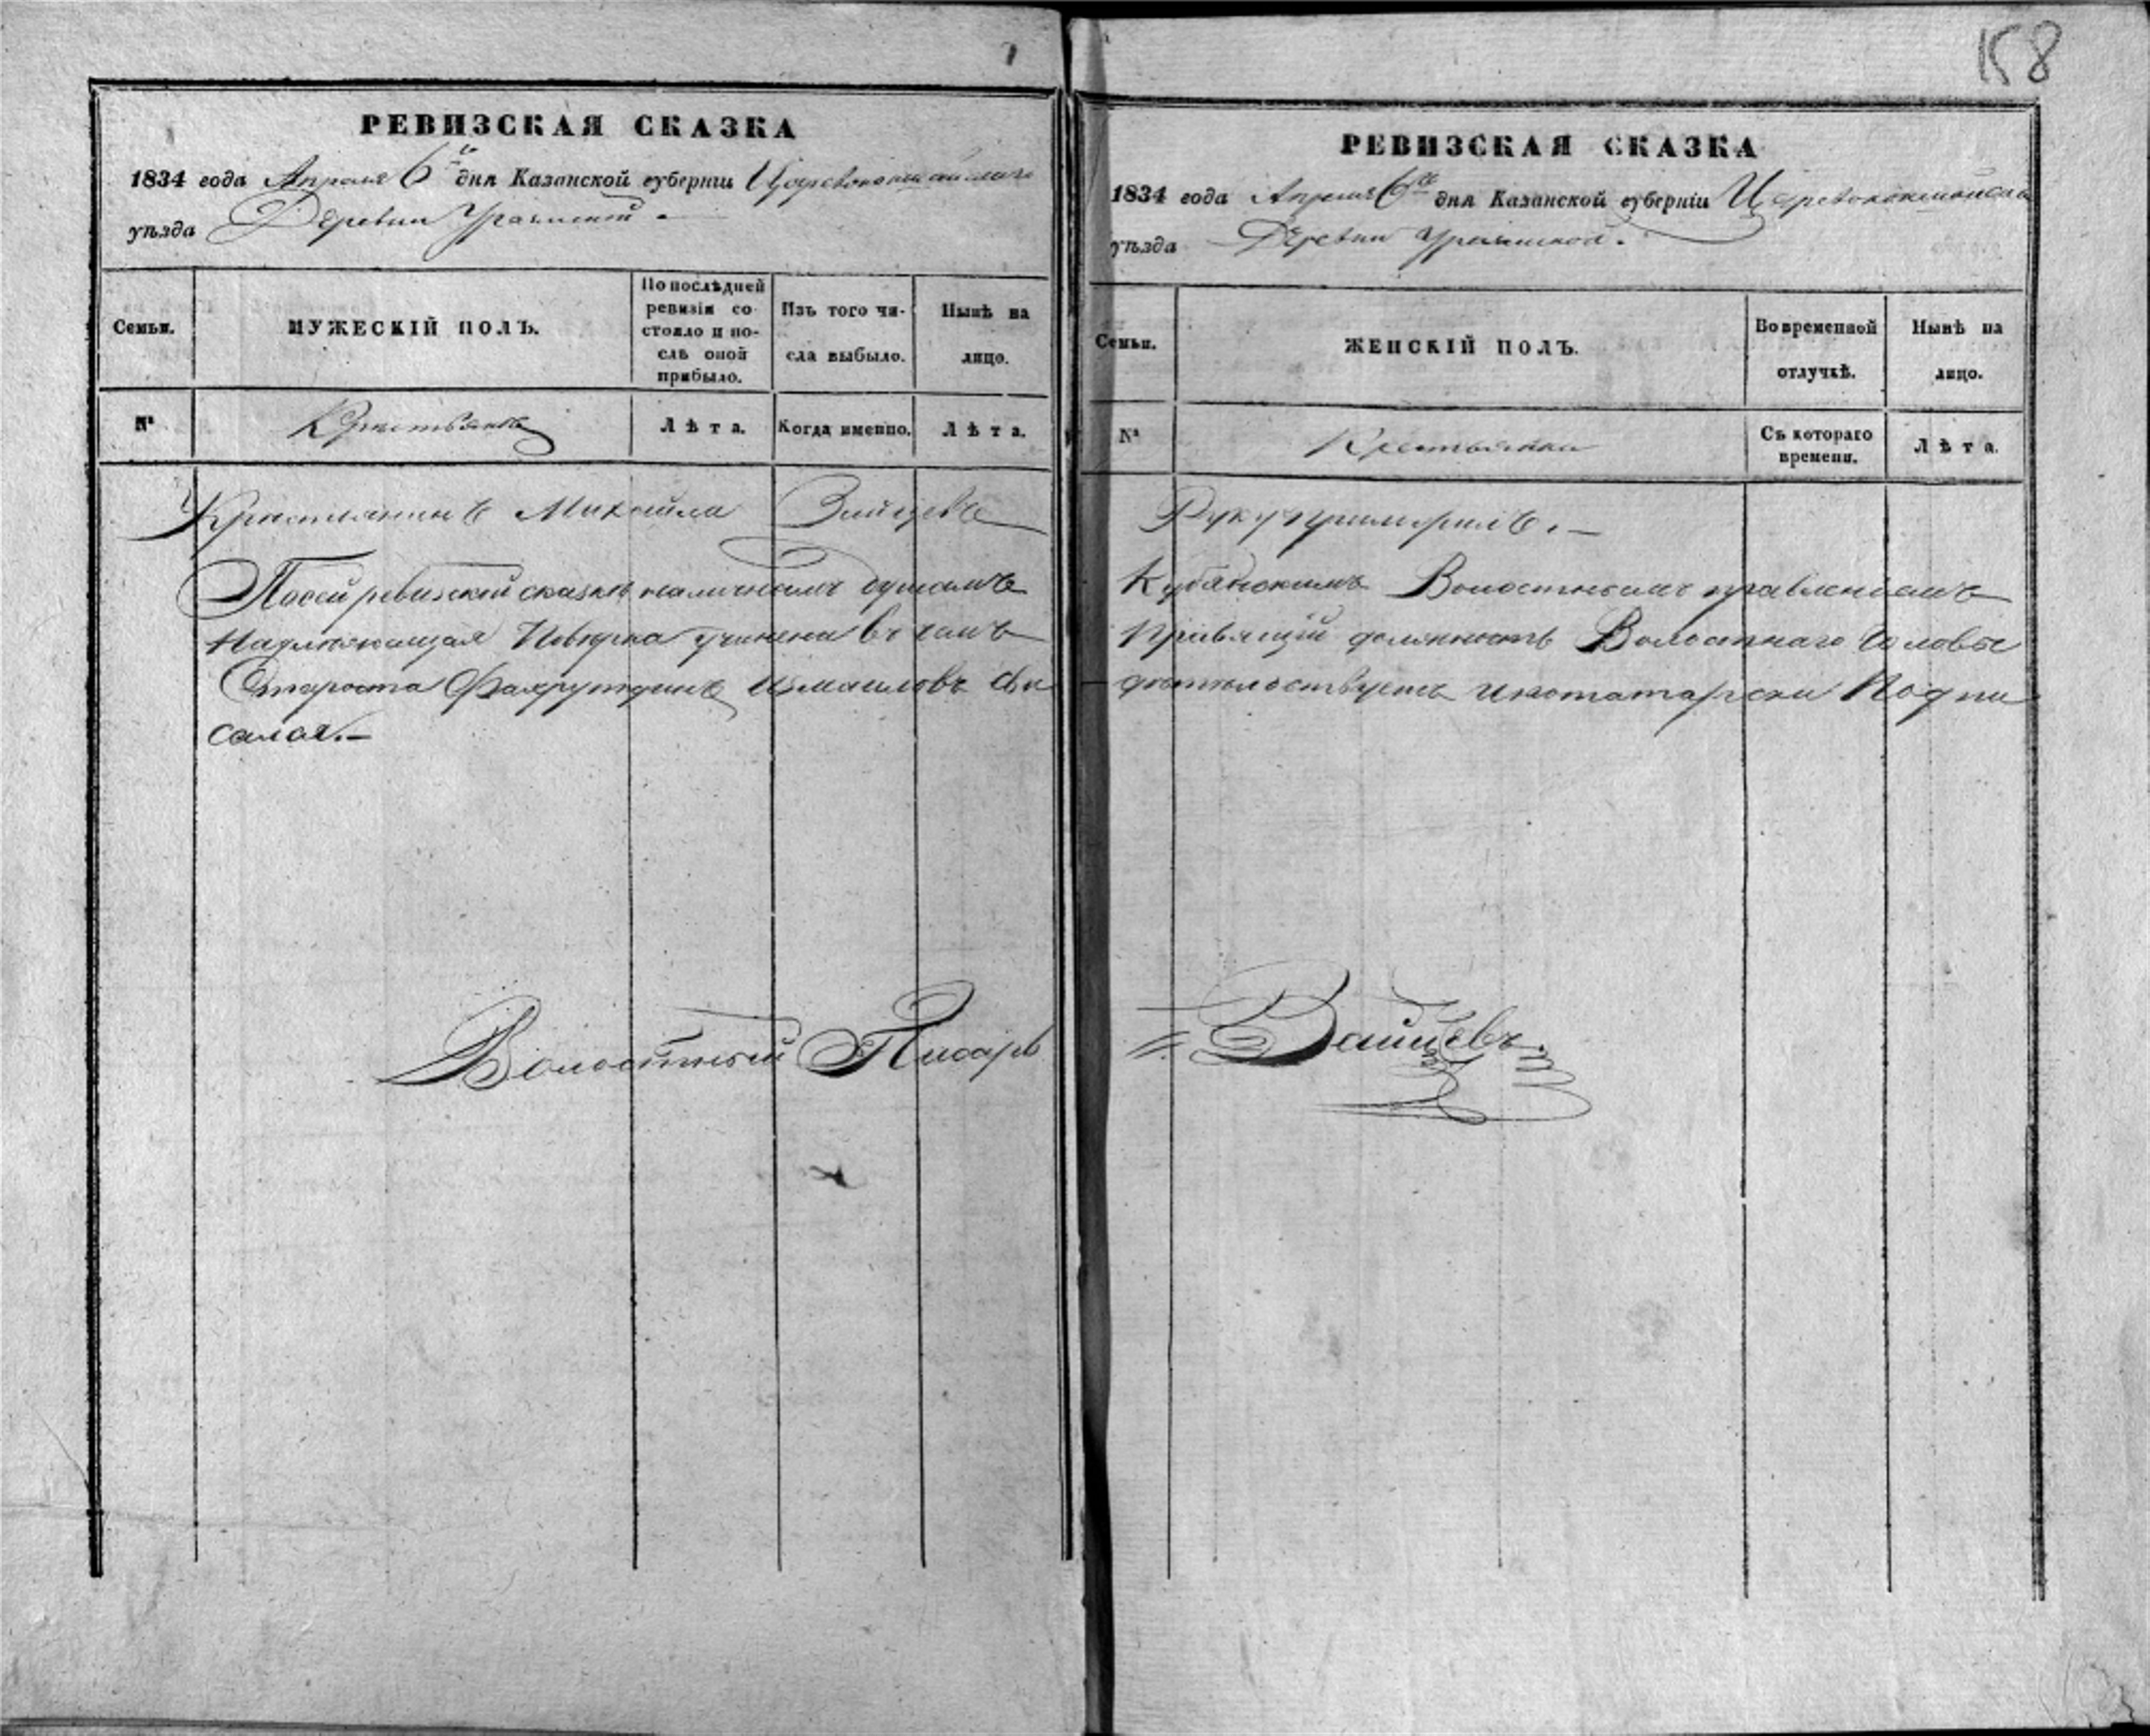 158
РЕВИЗСКАЯ СКАЗКА
1834 года Апреля 6го дня Казанской губернiи Царевококшайскаго
уѣзда Деревни
Семьи.
МУЖЕСКIЙ ПОЛЪ.
По послѣдней ревизiи состояло и послѣ оной прибыло.
Изъ того числа выбыло.
Нынѣ на лицо.
№
Крестьянъ
Лѣта.
Когда именно.
Лѣта.
Крестьянинъ Михайла Зайцевъ
По сей ревизской сказкѣ наличнымъ душамъ
Надлежащая Поверка учинена в чемъ
Староста Фахрутдинъ Измаиловъ сви
салъ
Волостный Писарь
РЕВИЗСКАЯ СКАЗКА
1834 года Апреля 6го дня Казанской губернiи Царевококшайскаго
уѣзда Деревни
Семьи.
ЖЕНСКIЙ ПОЛЪ.
Во временной отлучкѣ.
Нынѣ на лицо.
№
Крестьянки
Съ котораго времени.
Лѣта.
Руку приложилъ.
Волостнымъ правленiемъ
Правящiй должность Волостнаго Головы
детельствуетъ татарски Подпи
Зайцевъ.